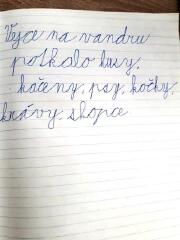 Vejce na vandru
potkalo husy,
kačeny, psy, kočky,
krávy, skopce.